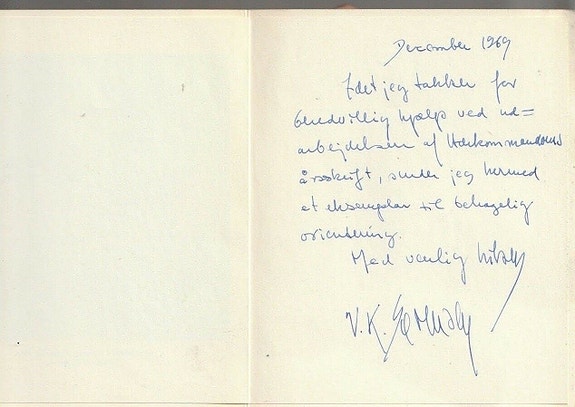 December 1969
Idet jeg takker for
beredvillig hjælp ved ud=
arbejdelsen af Hærkommandoens
årsskrift, sender jeg hermed
et eksemplar til behagelig
orientering.
Med venlig hilsen
V. K.